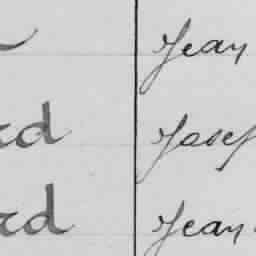 Jean
rd Josep
rd Jean